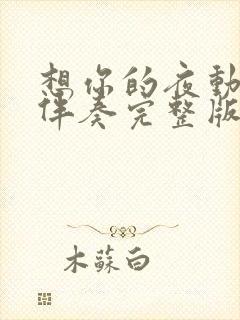 想你的夜動
伴奏完整版
木蘇白